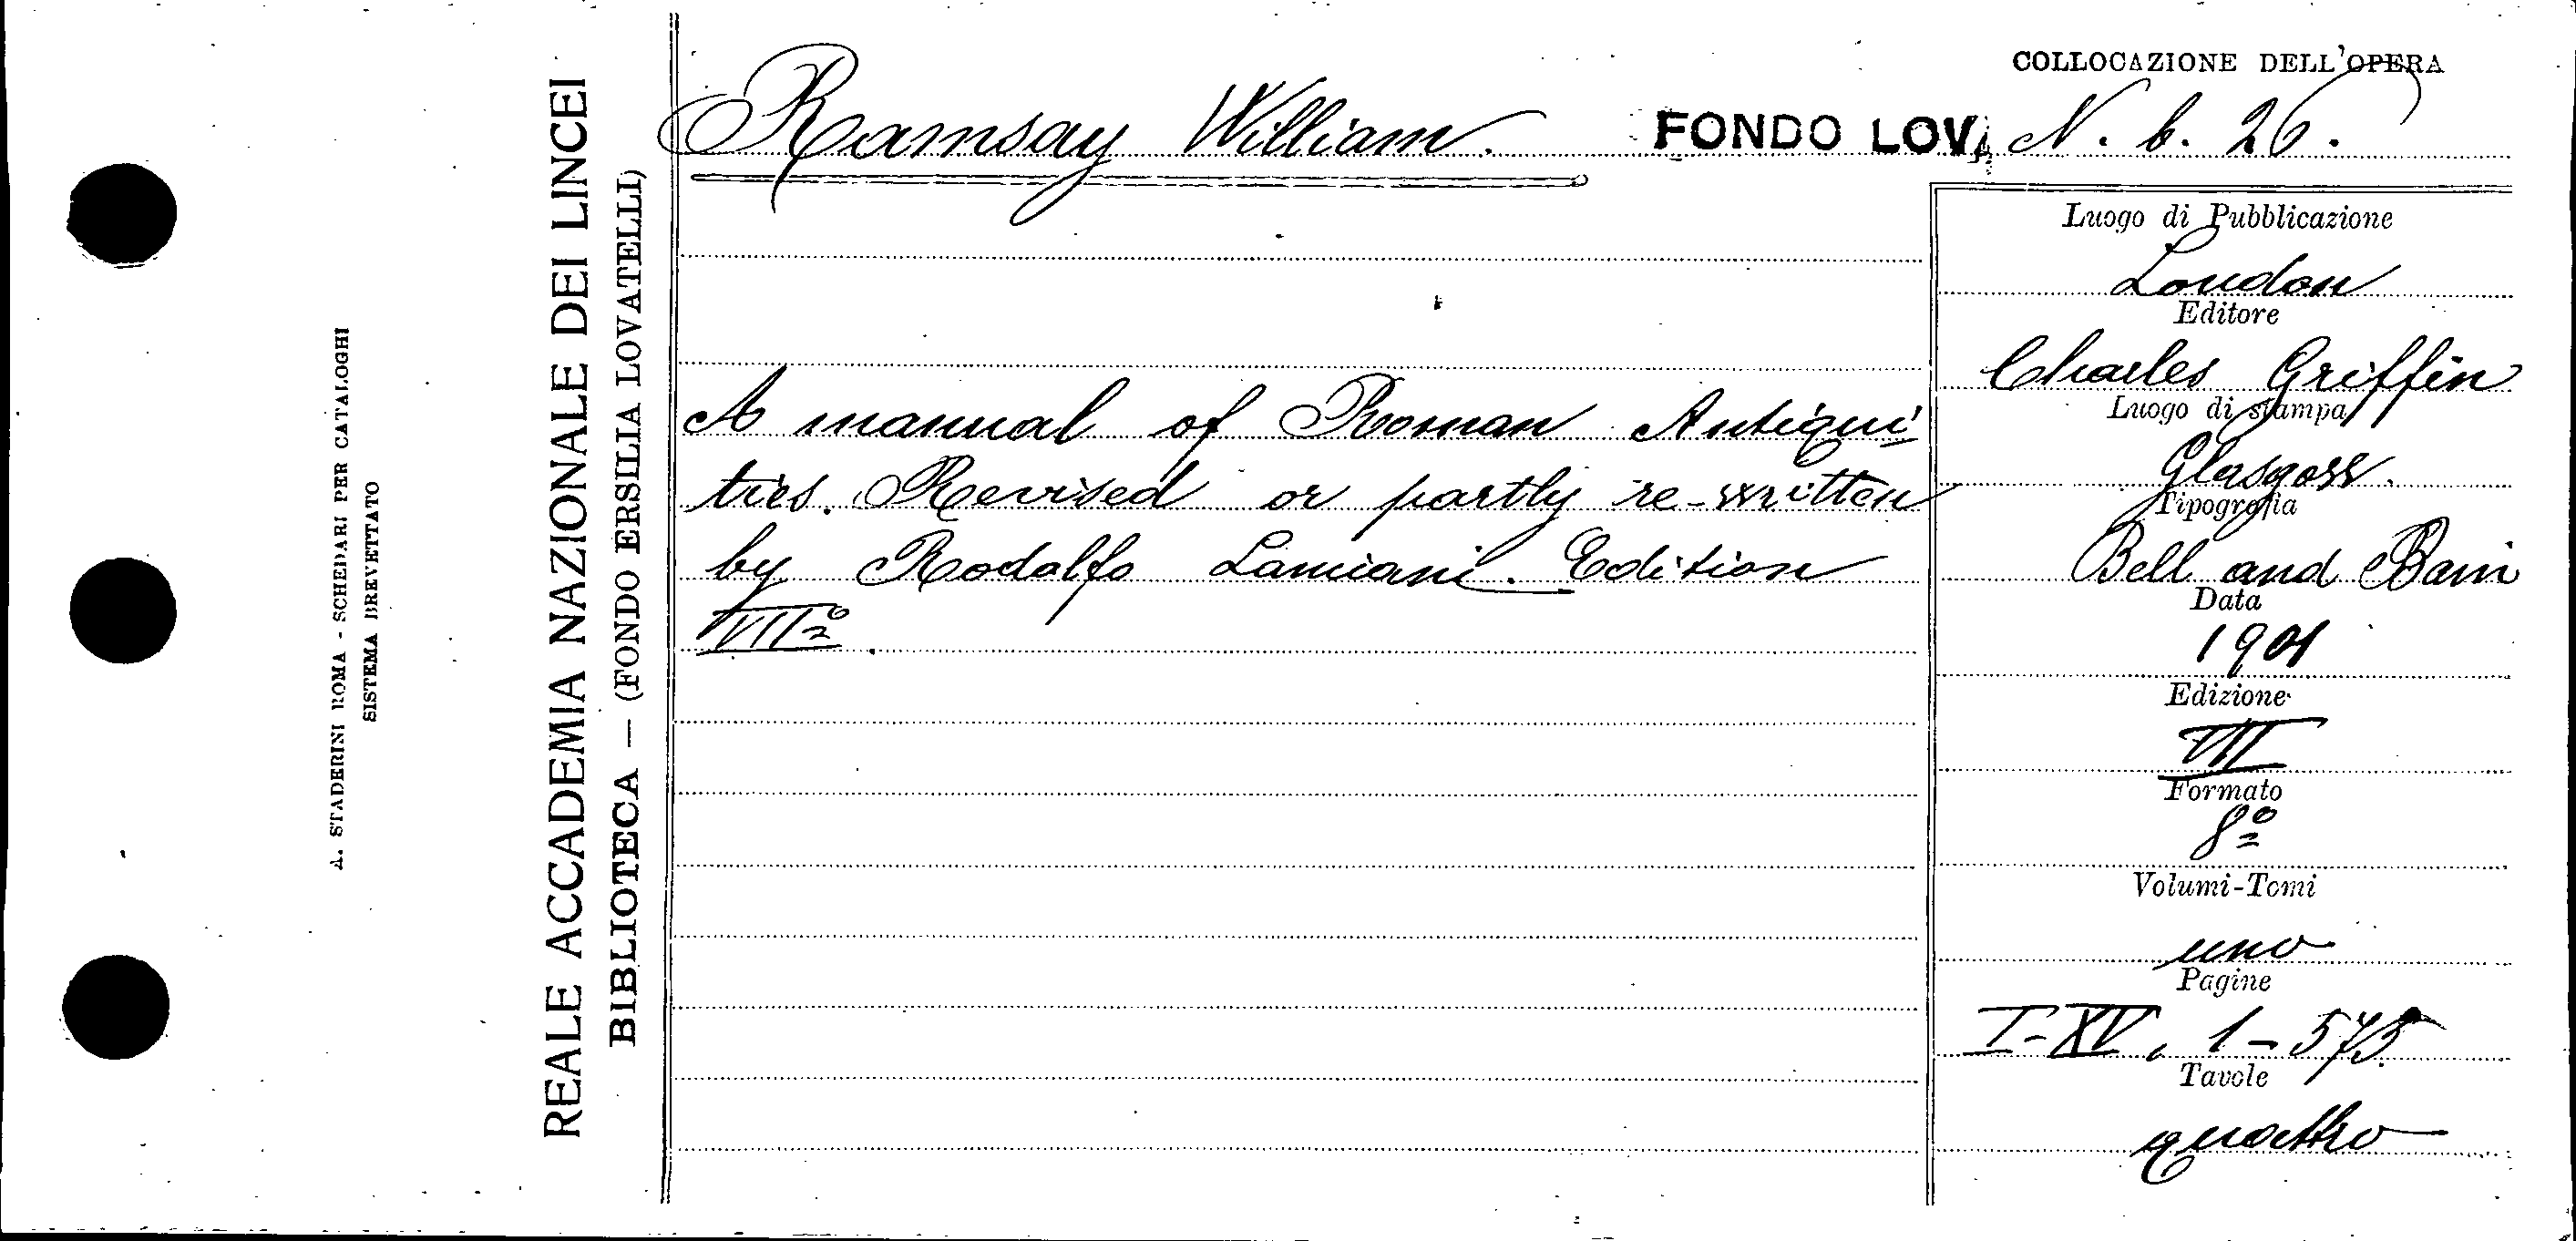 A. STADERINI ROMA - SCHEDARI PER CATALOGHI
SISTEMA BREVETTATO
REALE ACCADEMIA NAZIONALE DEI LINCEI
BIBLIOTECA — (FONDO ERSILIA LOVATELLI)
COLLOCAZIONE DELL'OPERA
Ramsay William. FONDO LOV. N. b. 26.
A manual of Roman Antiqui-
ties. Revised or partly re-written
by Rodolfo Lanciani. Edition
VIIª.
Luogo di Pubblicazione
London
Editore
Charles Griffin
Luogo di stampa
Glasgow.
Tipografia
Bell and Bain
Data
1901
Edizione
VII
Formato
8º
Volumi-Tomi
uno
Pagine
I-XV, 1-575.
Tavole
quattro